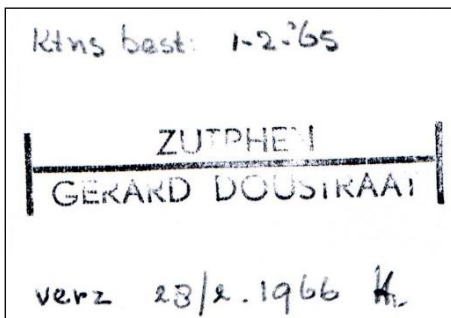 Ktns best: 1-2-'65
ZUTPHEN
GERARD DOUSTRAAT
verz 23/2.1966